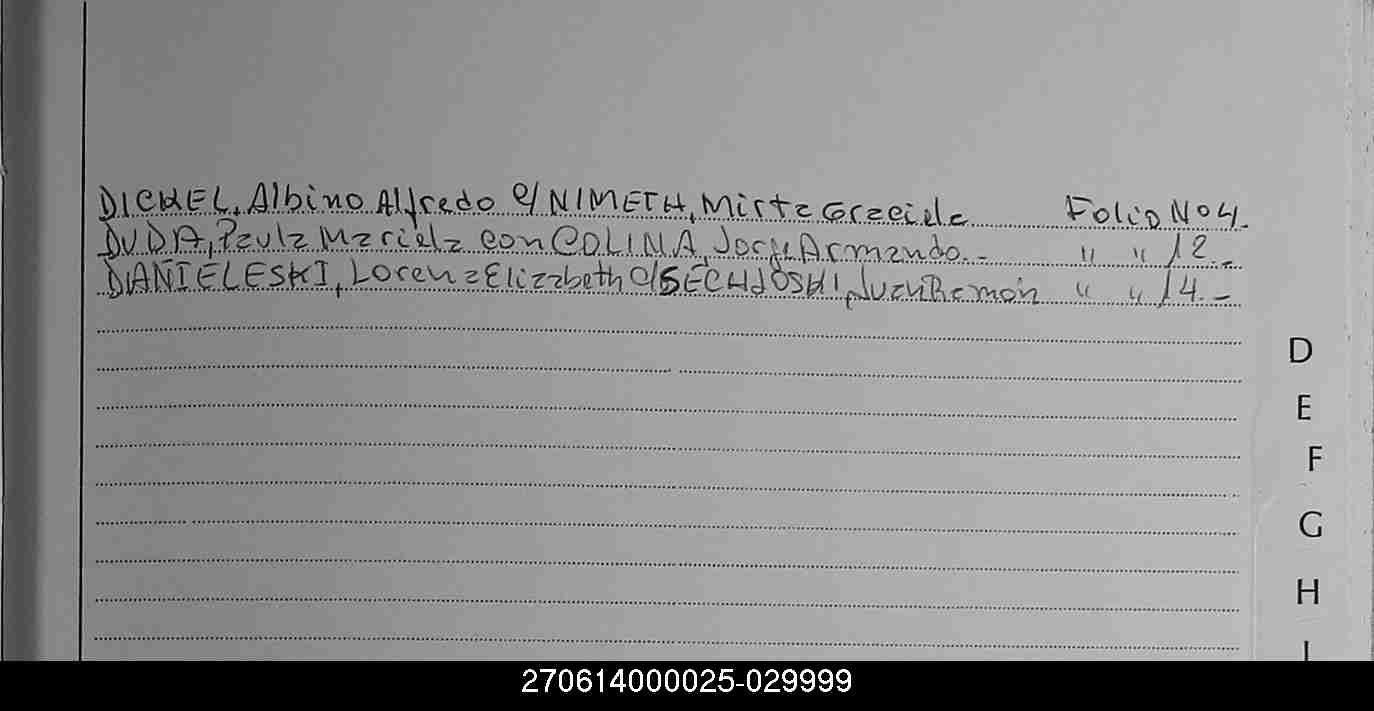 DICKEL, Albino Alfredo c/ NIMETH, Mirta Graciela Folio Nº 4.
DUDA, Paula Mariela con COLINA, Jorge Armando.- " " 12.-
DANIELESKI, Lorena Elizabeth c/ Juan Ramón " " 14.-
D
E
F
G
H
I
270614000025-029999